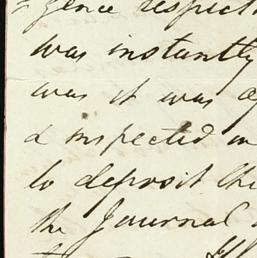 =gence respect
was instantly
was it was
& inspected
to deposit the
the Journal